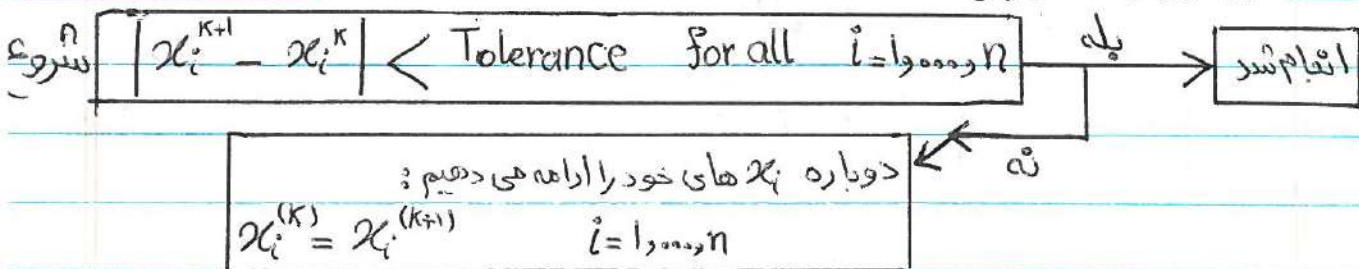 شروع |x_i^{K+1} - x_i^K| < Tolerance for all i=1,...,n بله انجام شد
نه
دوباره x_i های خود را ادامه می دهیم:
x_i^{(K)} = x_i^{(K+1)} i=1,...,n